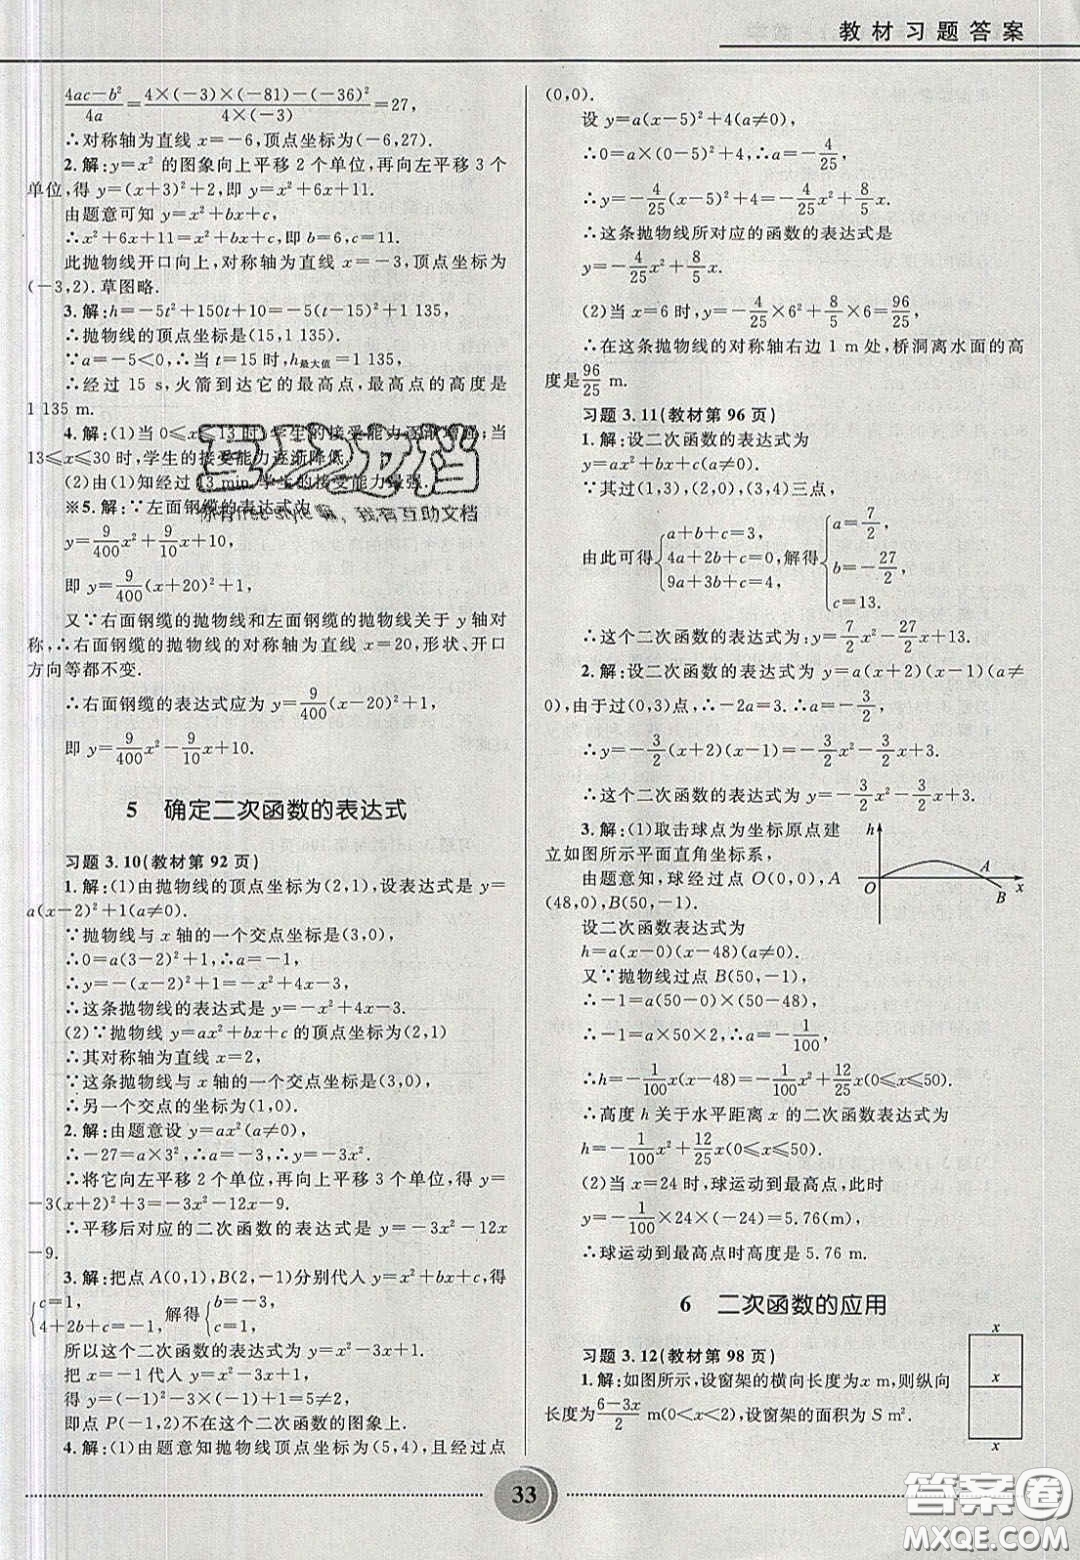 教材习题答案
(4ac−b²)/4a=(4×(−3)×(−81)−(−36)²)/(4×(−3))=27,
∴对称轴为直线 x=−6,顶点坐标为(−6,27).
2.解:y=x² 的图象向上平移 2 个单位,再向左平移 3 个
单位,得 y=(x+3)²+2,即 y=x²+6x+11.
由题意可知 y=x²+bx+c,
∴x²+6x+11=x²+bx+c,即 b=6,c=11.
此抛物线开口向上,对称轴为直线 x=−3,顶点坐标为
(−3,2).草图略.
3.解:h=−5t²+150t+10=−5(t−15)²+1 135,
∴抛物线的顶点坐标是(15,1 135).
∵a=−5<0,∴当 t=15 时,h最大值=1 135,
∴经过 15 s,火箭到达它的最高点,最高点的高度是
1 135 m.
4.解:(1)当 0⩽x⩽13 时,学生的接受能力逐渐增强;当
13⩽x⩽30 时,学生的接受能力逐渐降低.
(2)由(1)知经过 13 min,学生的接受能力最强.
※5.解:∵左面钢缆的表达式为
y=9/400x²+9/10x+10,
即 y=9/400(x+20)²+1,
又∵右面钢缆的抛物线和左面钢缆的抛物线关于 y 轴对
称,∴右面钢缆的抛物线的对称轴为直线 x=20,形状、开口
方向等都不变.
∴右面钢缆的表达式应为 y=9/400(x−20)²+1,
即 y=9/400x²−9/10x+10.
5 确定二次函数的表达式
习题 3.10(教材第 92 页)
1.解:(1)由抛物线的顶点坐标为(2,1),设表达式是 y=
a(x−2)²+1(a≠0).
∵抛物线与 x 轴的一个交点坐标是(3,0),
∴0=a(3−2)²+1,∴a=−1,
∴y=−(x−2)²+1=−x²+4x−3,
∴这条抛物线的表达式是 y=−x²+4x−3.
(2)∵抛物线 y=ax²+bx+c 的顶点坐标为(2,1)
∴其对称轴为直线 x=2,
∵这条抛物线与 x 轴的一个交点坐标为(3,0),
∴另一个交点的坐标为(1,0).
2.解:由题意设 y=ax²(a≠0),
∴−27=a×3²,∴a=−3,∴y=−3x².
∴将它向左平移 2 个单位,再向上平移 3 个单位,得 y=
−3(x+2)²+3=−3x²−12x−9.
∴平移后对应的二次函数的表达式是 y=−3x²−12x
−9.
3.解:把点 A(0,1),B(2,−1)分别代人 y=x²+bx+c,得
{c=1, 4+2b+c=−1, 解得{b=−3, c=1.
所以这个二次函数的表达式为 y=x²−3x+1.
把 x=−1 代人 y=x²−3x+1,
得 y=(−1)²−3×(−1)+1=5≠2,
即点 P(−1,2)不在这个二次函数的图象上.
4.解:(1)由题意知抛物线顶点坐标为(5,4),且经过点
(0,0).
设 y=a(x−5)²+4(a≠0),
∴0=a×(0−5)²+4,∴a=−4/25,
∴y=−4/25(x−5)²+4=−4/25x²+8/5x.
∴这条抛物线所对应的函数的表达式是
y=−4/25x²+8/5x.
(2)当 x=6 时,y=−4/25×6²+8/5×6=96/25,
∴在这条抛物线的对称轴右边 1 m 处,桥洞离水面的高
度是96/25 m.
习题 3.11(教材第 96 页)
1.解:设二次函数的表达式为
y=ax²+bx+c(a≠0).
∵其过(1,3),(2,0),(3,4)三点,
由此可得{a+b+c=3, 4a+2b+c=0, 9a+3b+c=4, 解得{a=7/2, b=−27/2, c=13.
∴这个二次函数的表达式为:y=7/2x²−27/2x+13.
2.解:设二次函数的表达式为 y=a(x+2)(x−1)(a≠
0),由于过(0,3)点,∴−2a=3.∴a=−3/2,
∴y=−3/2(x+2)(x−1)=−3/2x²−3/2x+3.
∴这个二次函数的表达式为 y=−3/2x²−3/2x+3.
3.解:(1)取击球点为坐标原点建
立如图所示平面直角坐标系,
由题意知,球经过点 O(0,0),A
(48,0),B(50,−1).
h
O
A
B
x
设二次函数表达式为
h=a(x−0)(x−48)(a≠0).
又∵抛物线过点 B(50,−1),
∴−1=a(50−0)×(50−48),
∴−1=a×50×2,∴a=−1/100,
∴h=−1/100x(x−48)=−1/100x²+12/25x(0⩽x⩽50).
∴高度 h 关于水平距离 x 的二次函数表达式为
h=−1/100x²+12/25x(0⩽x⩽50).
(2)当 x=24 时,球运动到最高点,此时
y=−1/100×24×(−24)=5.76(m),
∴球运动到最高点时高度是 5.76 m.
6 二次函数的应用
习题 3.12(教材第 98 页)
1.解:如图所示,设窗架的横向长度为x m,则纵向
长度为(6−3x)/2 m(0<x<2),设窗架的面积为 S m².
x
x
33
答案圈
MXQE.COM